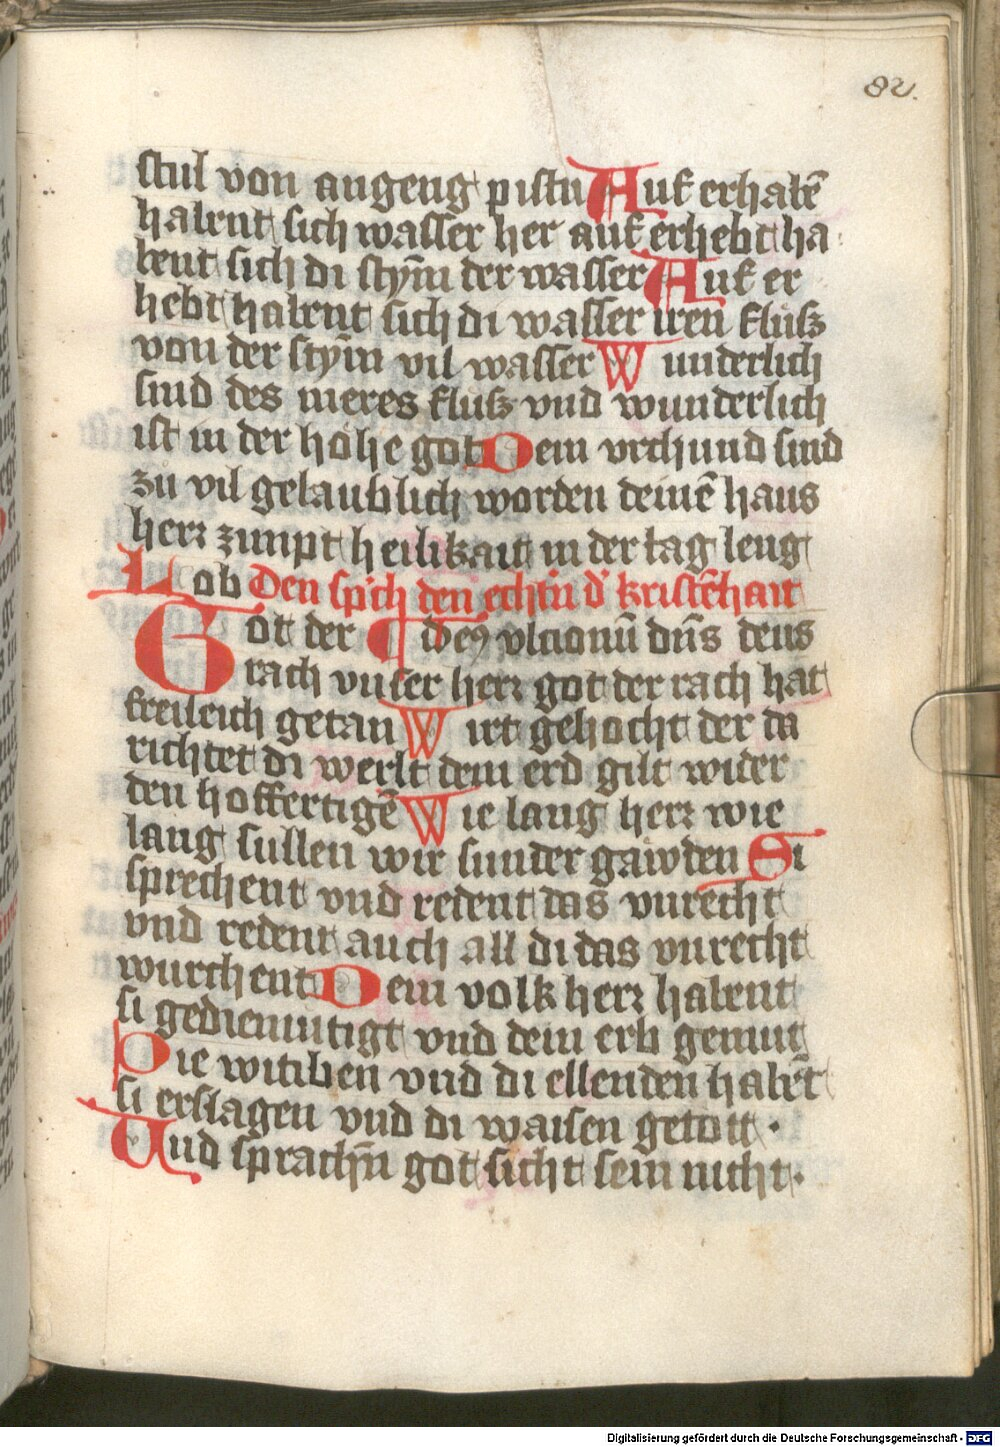 82.
stul von angeng pistu Auf erhabē
habent sich wasser her auf erhebt ha
bent sich di stym̄ der wasser Auf er
hebt habent sich di wasser iren flusz
von der stym̄ vil wasser Wunderlich
sind des meres flusz vnd wunderlich
ist in der hohe got Dein vrchund sind
zu vil gelaublich worden deinē haus
herr zimpt heilikait in der tag leng
Lob Den spͥch den echtn̄ dͥ kristēhait
Got der Deus vlcionū dn̄s deus
rach vnser herr got der rach hat
freileich getan Wirt gehocht der da
richtet di werlt dem erd gilt wider
den hoffertigē Wie lang herr wie
lang sullen wir sunder gawden Si
sprechent vnd redent das vnrecht
vnd redent auch all di das vnrecht
wurchent Dein volk herr habent
si gediemutigt vnd dem erb gemut
Die witiben vnd di ellenden habēt
si erslagen vnd di waisen getott ·
Vnd sprachn̄ got sicht sein nicht ·
Digitalisierung gefördert durch die Deutsche Forschungsgemeinschaft - DFG